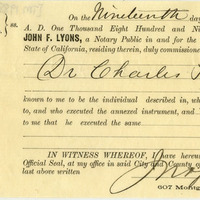 On the Nineteenth d
ss.
A. D. One Thousand Eight Hundred and Ni
JOHN F. LYONS, a Notary Public in and for the
State of California, residing therein, duly commissione
Dr Charles
known to me to be the individual described in, wh
to, and who executed the annexed instrument, and
to me that he executed the same
IN WITNESS WHEREOF, I have hereun
Official Seal, at my office in said City and County o
last above written
607 Montg